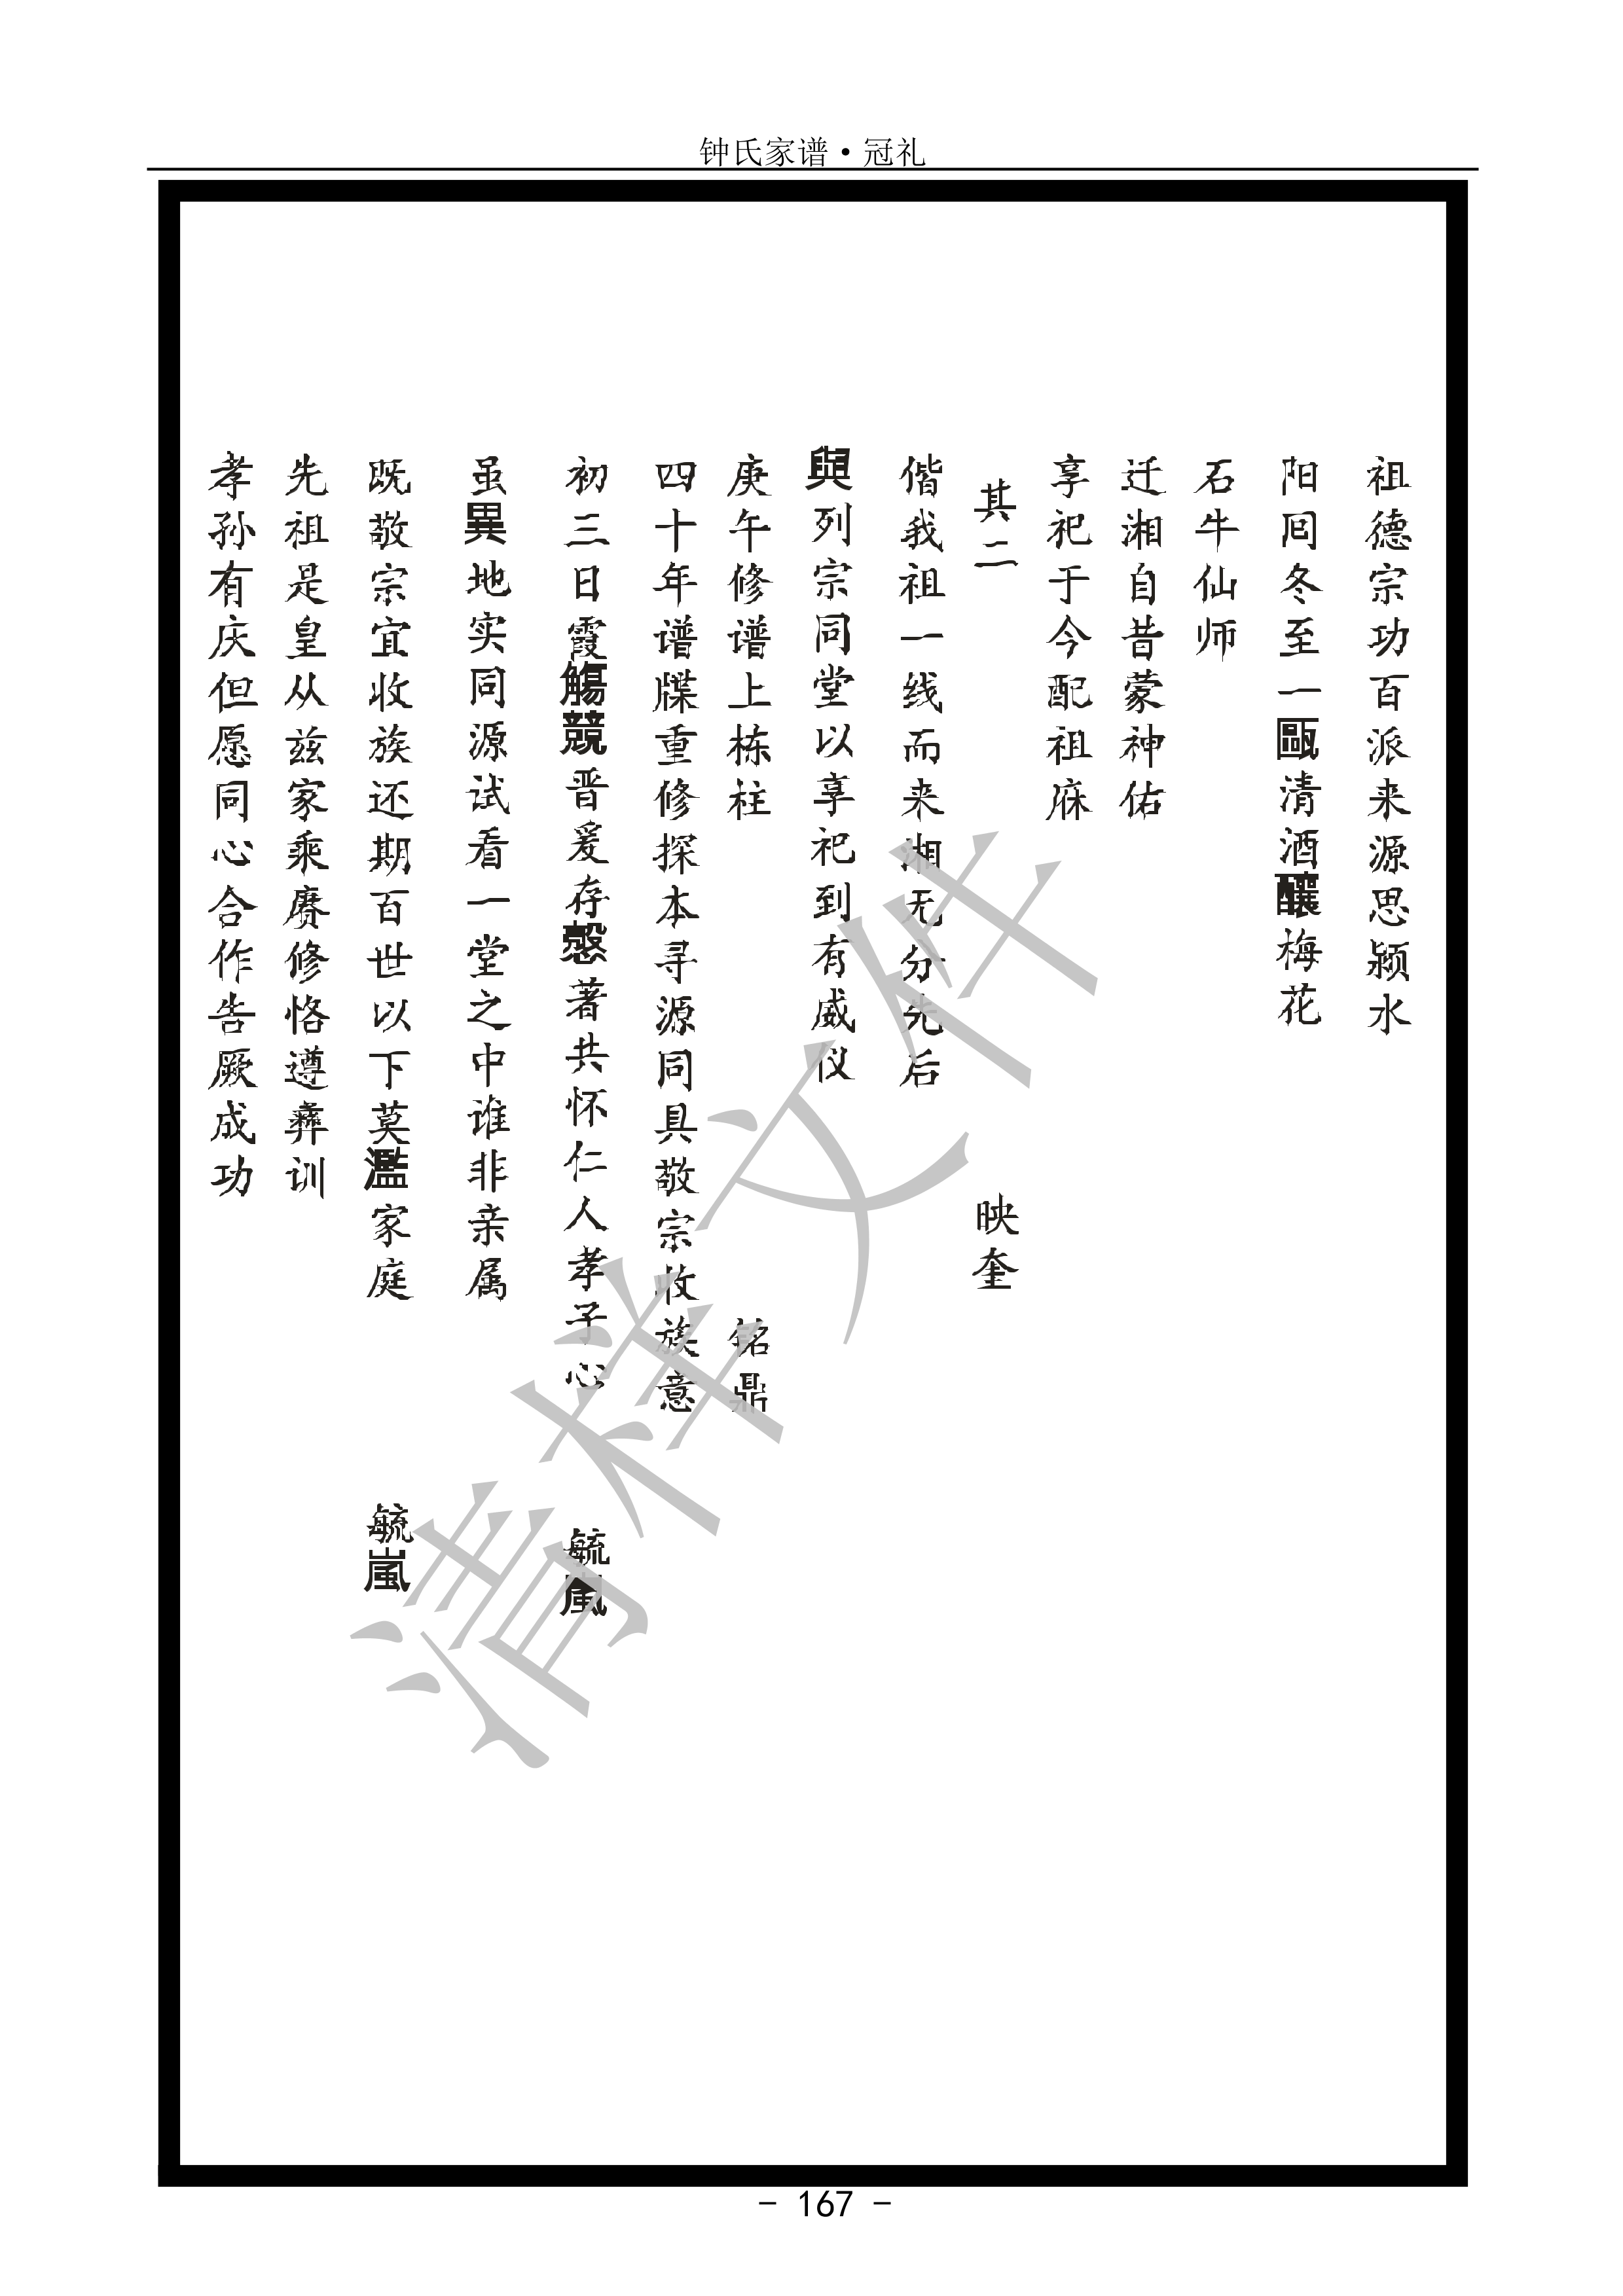 钟氏家谱·冠礼
祖德宗功百派来源思颍水
阳回冬至一甌清酒釀梅花
石牛仙师
迁湘自昔蒙神佑
享祀于今配祖庥
其二 映奎
偕我祖一线而来湘无分先后
與列宗同堂以享祀到有威仪
庚午修谱上栋柱 铭鼎
四十年谱牒重修探本寻源同具敬宗收族意
初三日霞觴競晋爰存慤著共怀仁人孝子心 毓嵐
虽異地实同源试看一堂之中谁非亲属
既敬宗宜收族还期百世以下莫濫家庭 毓嵐
先祖是皇从兹家乘赓修恪遵彝训
孝孙有庆但愿同心合作告厥成功
清样文件
- 167 -